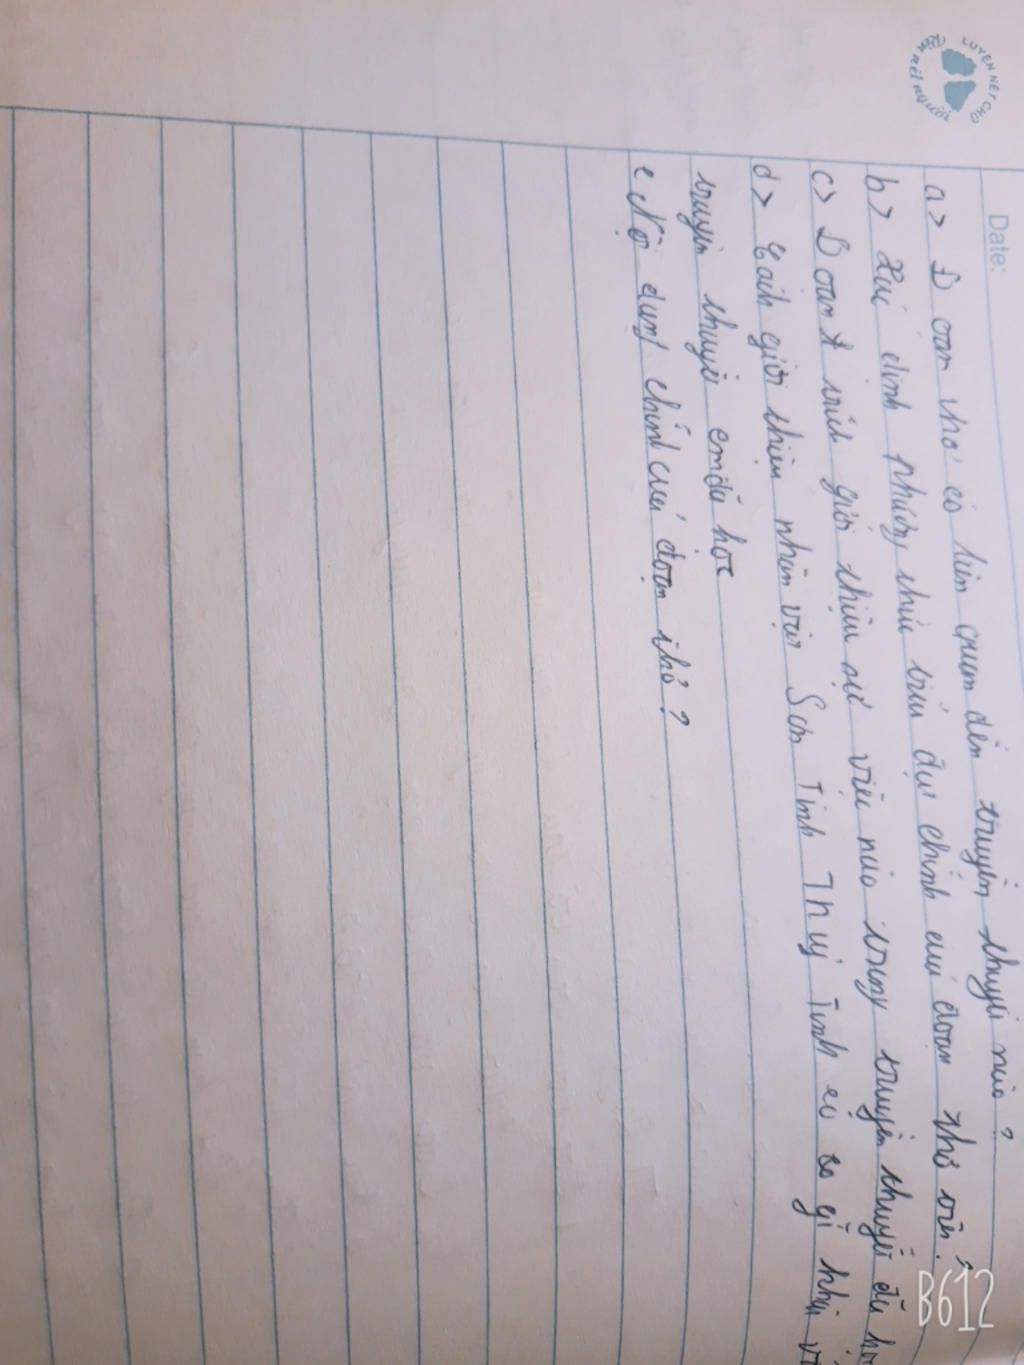 LUYỆN NÉT CHỮ
rèn nết người
Date:
a> Đoạn thơ có liên quan đến truyện thuyết nào?
b> Xác định phương thức biểu đạt chính của đoạn thơ trên?
c> Đoạn trích giới thiệu sự việc nào trong truyện thuyết đã
d> Cách giới thiệu nhân vật Sơn Tinh Thuỷ Tinh có gì khác
truyện thuyết em đã học
e Nội dung chính của đoạn thơ?
B612